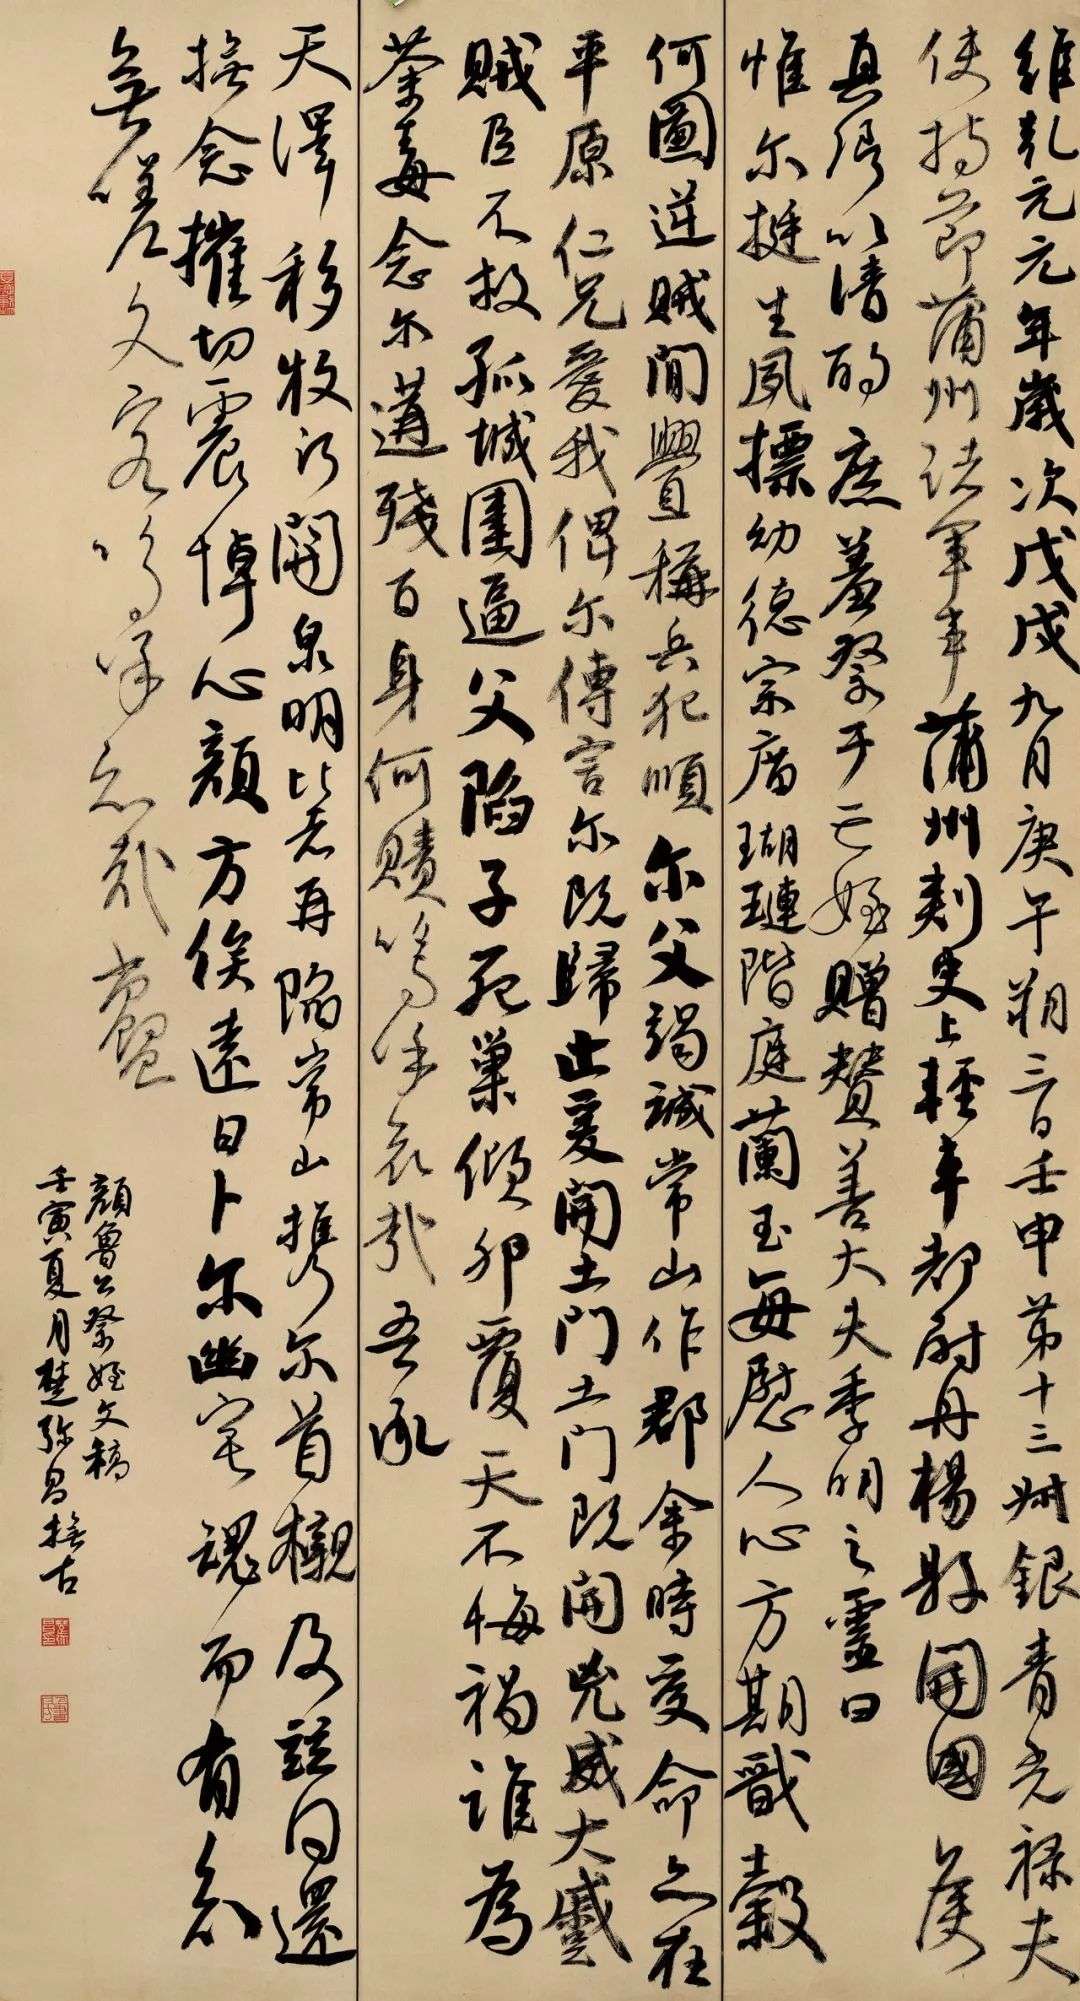 維乾元元年歲次戊戌九月庚午朔三日壬申第十三叔銀青光祿夫
使持節蒲州諸軍事蒲州刺史上輕車都尉丹楊縣開國侯
真卿以清酌庶羞祭于亡姪贈贊善大夫季明之靈曰
惟尔挺生夙標幼德宗廟瑚璉階庭蘭玉每慰人心方期戩穀
何圖逆賊閒釁稱兵犯順尔父竭誠常山作郡余時受命亦在
平原仁兄愛我俾尔傳言尔既歸止爰開土門土門既開兇威大蹙
賊臣不救孤城圍逼父陷子死巢傾卵覆天不悔禍誰為
荼毒念尔遘殘百身何贖嗚呼哀哉吾承
天澤移牧河關泉明比者再陷常山攜尔首櫬及茲同還
撫念摧切震悼心顏方俟遠日卜尔幽宅魂而有知
無嗟久客嗚呼哀哉尚饗
顏魯公祭姪文稿
壬寅夏月楚弥昌撫古